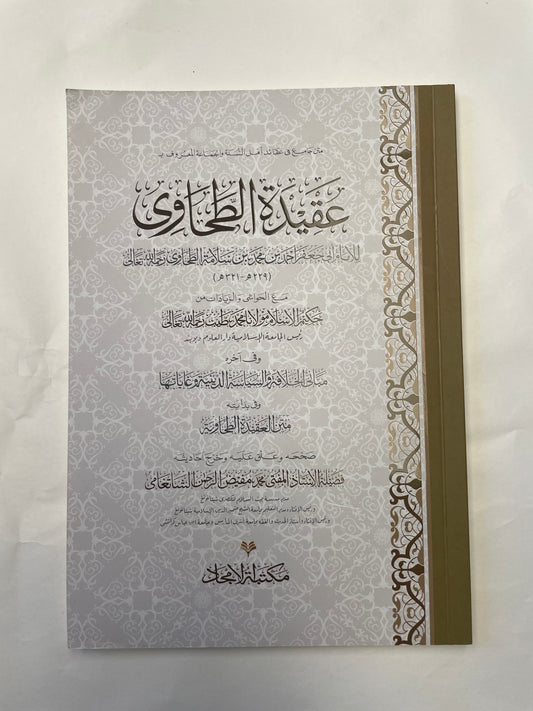 متن جامع في عقائد أهل السنة والجماعة المعروف بـ
عقيدة الطحاوي
للإمام أبي جعفر أحمد بن محمد بن سلامة الطحاوي رحمه الله تعالى
(٢٢٩هـ-٣٢١هـ)
مع الحواشي والزيادات من
حكيم الإسلام مولانا محمد طيب رحمه الله تعالى
رئيس الجامعة الإسلامية دار العلوم ديوبند
وفي آخره
مباني الخلافة والسياسة الدينية وغاياتها
وفي بدايته
متن العقيدة الطحاوية
صححه وعلق عليه وخرج أحاديثه
فضيلة الأستاذ المفتي محمد مفيض الرحمن الشاتغامي
مكتبة الأمجاد